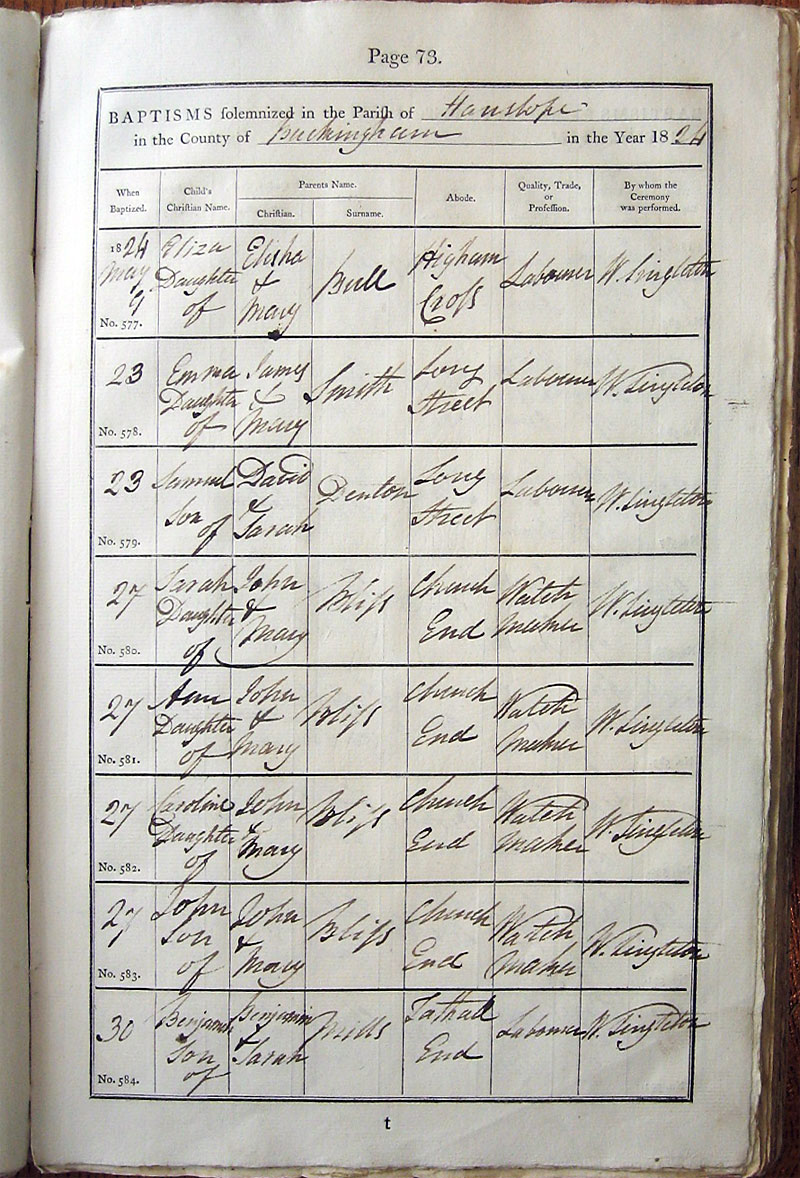 Page 73.
BAPTISMS solemnized in the Parish of Hanslope
in the County of Buckingham in the Year 1824
When Baptized. Child's Christian Name. Parents Name. Christian. Surname. Abode. Quality, Trade, or Profession. By whom the Ceremony was performed.
1824 May 9 No. 577. Eliza Daughter of Elisha & Mary Bull Higham Cross Labourer W. Singleton
23 No. 578. Emma Daughter of James & Mary Smith Long Street Labourer W. Singleton
23 No. 579. Samuel Son of David & Sarah Denton Long Street Labourer W. Singleton
27 No. 580. Sarah Daughter of John & Mary Bliss Church End Watch Maker W. Singleton
27 No. 581. Ann Daughter of John & Mary Bliss Church End Watch Maker W. Singleton
27 No. 582. Caroline Daughter of John & Mary Bliss Church End Watch Maker W. Singleton
27 No. 583. John Son of John & Mary Bliss Church End Watch Maker W. Singleton
30 No. 584. Benjamin Son of Benjamin & Sarah Mills Tathall End Labourer W. Singleton
t